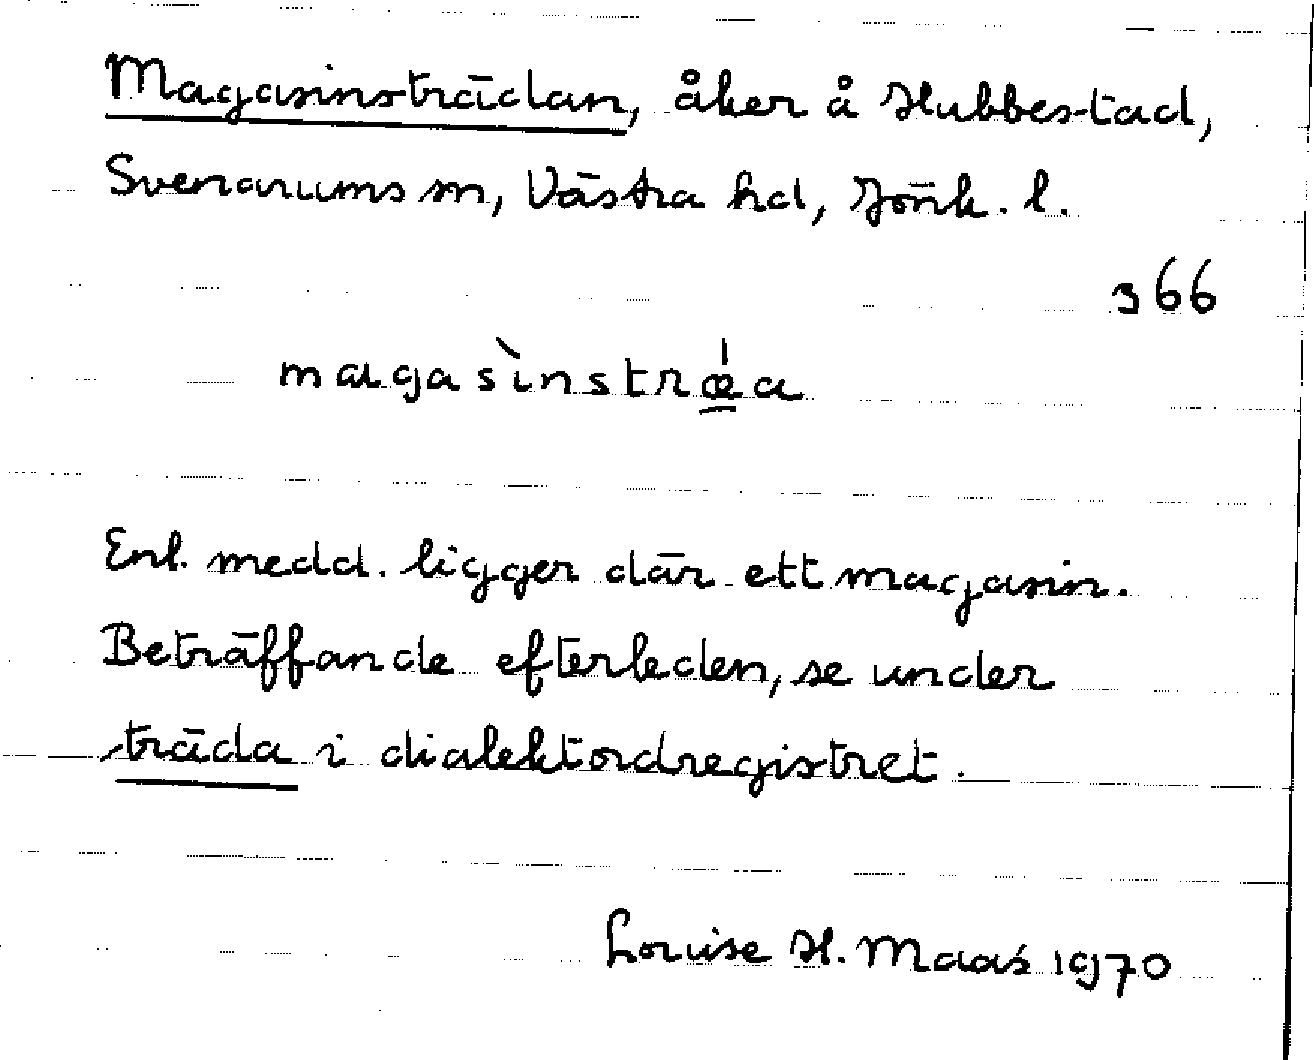 Magasinsträdan, åker å Hubbestad,
Svenarums sn, Västra hd, Jönk. l.
366
magasìnstrǽ̱a
Enl. medd. ligger där ett magasin.
Beträffande efterleden, se under
träda i dialektordregistret.
Louise H. Maas 1970